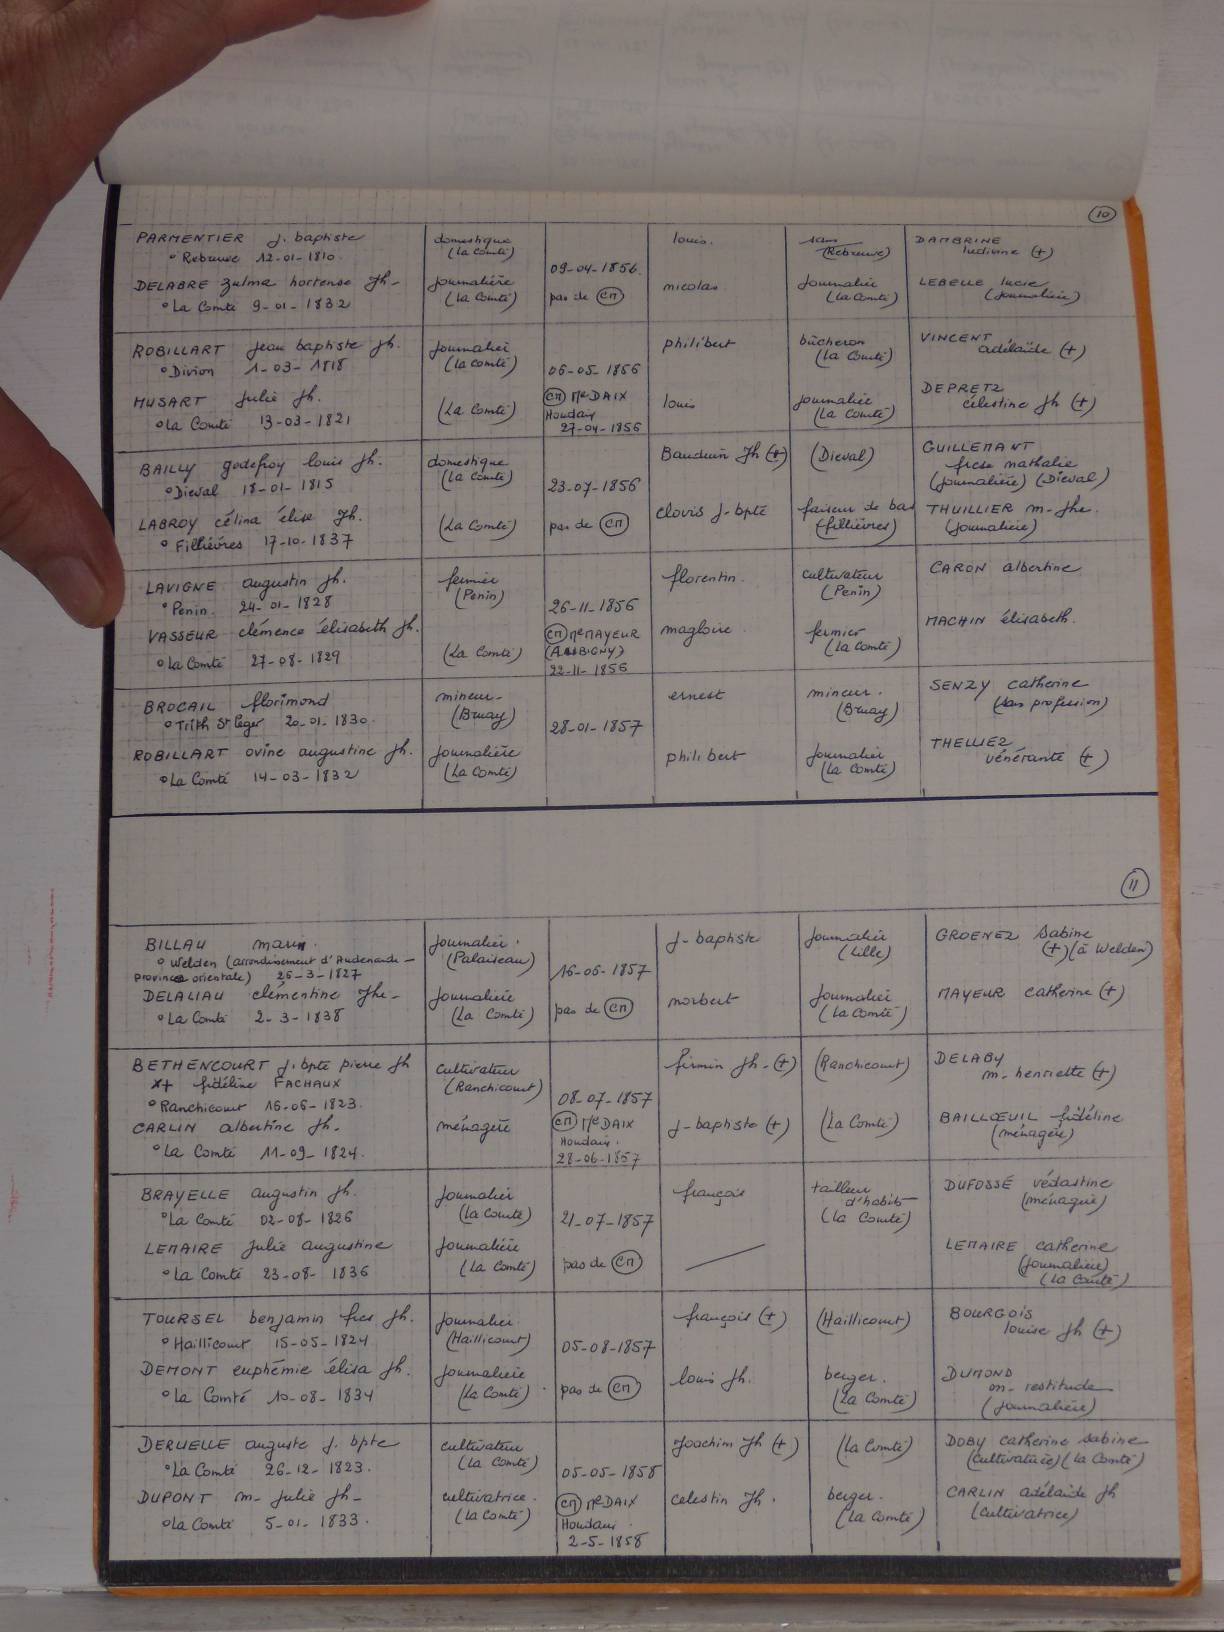 10
PARMENTIER J. baptiste domestique louis. sans DAMBRINE
° Rebreuve 12-01-1810 (La Comté) 09-04-1856 (Rebreuve) ludivine (+)
DELABRE zulma hortense Jh- journalière nicolas journalier LEBELLE lucie
° La Comté 9-01-1832 (La Comté) pas de CM (La Comté) (journalière)
ROBILLART jean baptiste Jh. journalier philibert bûcheron VINCENT
° Divion 1-03-1818 (La Comté) 06-05-1856 (La Comté) adélaïde (+)
MUSART julie Jh. (La Comté) CM Me DAIX louis journalier DEPRETZ
° La Comté 13-03-1821 Houdain (La Comté) célestine Jh (+)
27-04-1856
BAILLY godefroy louis Jh. domestique Bauduin Jh (+) (Dieval) GUILLEMANT
° Dieval 18-01-1815 (La Comté) 23-07-1856 fcse nathalie
(journalière) (Dieval)
LABROY célina élise Jh. (La Comté) pas de CM clovis J-bpte faiseur de bas THUILLIER m-jhe.
° Fillièvres 17-10-1837 (fillièvres) (journalière)
LAVIGNE augustin Jh. fermier florentin. cultivateur CARON albertine
° Penin. 24-01-1828 (Penin) 26-11-1856 (Penin)
VASSEUR clémence élisabeth Jh. CM Me MAYEUR magloire. fermier MACHIN élisabeth.
° La Comté 27-08-1829 (La Comté) (AUBIGNY) (La Comté)
22-11-1856
BROCAIL florimond mineur- ernest mineur. SENZY catherine
° Trith St léger 20-01-1830. (Bruay) 28-01-1857 (Bruay) (sans profession)
ROBILLART ovine augustine Jh. journalière philibert journalier THELLIEZ
° La Comté 14-03-1832 (La Comté) (La Comté) vénérante (+)
11
BILLAU marin. journalier. J-baptiste journalier GROENEZ sabine
° Welden (arrondissement d'Audenarde- (Palaiseau) 16-06-1857 (Lille) (+) (à Welden)
province orientale) 26-3-1827
DELALIAU clémentine Jhe- journalière pas de CM norbert journalier MAYEUR catherine (+)
° La Comté 2-3-1838 (La Comté) (La Comté)
BETHENCOURT J. bpte pierre Jh cultivateur firmin Jh-(+) (Ranchicourt) DELABY
x+ fidéline FACHAUX (Ranchicourt) m-henriette (+)
° Ranchicourt 16-06-1823. 08-07-1857
CARLIN albertine Jh- ménagère CM Me DAIX J-baptiste (+) (La Comté) BAILLŒUIL fidéline
° La Comté 11-09-1824. Houdain. (ménagère)
28-06-1857
BRAYELLE augustin Jh. journalier françois tailleur DUFOSSÉ védastine
° La Comté 02-08-1826 (La Comté) 21-07-1857 d'habits (ménagère)
(La Comté)
LEMAIRE julie augustine journalière pas de CM LEMAIRE catherine
° La Comté 23-08-1836 (La Comté) (journalière)
(La Comté)
TOURSEL benjamin fcs Jh. journalier françois (+) (Haillicourt) BOURGOIS
° Haillicourt 15-05-1824 (Haillicourt) 05-08-1857 louise Jh (+)
DEMONT euphémie élisa Jh. journalière pas de CM louis Jh. berger. DUMOND
° La Comté 10-08-1834 (La Comté) (La Comté) m-restitude
(journalière)
DERUELLE auguste J. bpte cultivateur joachim Jh (+) (La Comté) DOBY catherine sabine
° La Comté 26-12-1823. (La Comté) 05-05-1858 (cultivatrice) (La Comté)
DUPONT m-julie Jh- cultivatrice. CM Me DAIX celestin Jh. berger. CARLIN adélaïde Jh
° La Comté 5-01-1833. (La Comté) Houdain. (La Comté) (cultivatrice)
2-5-1858